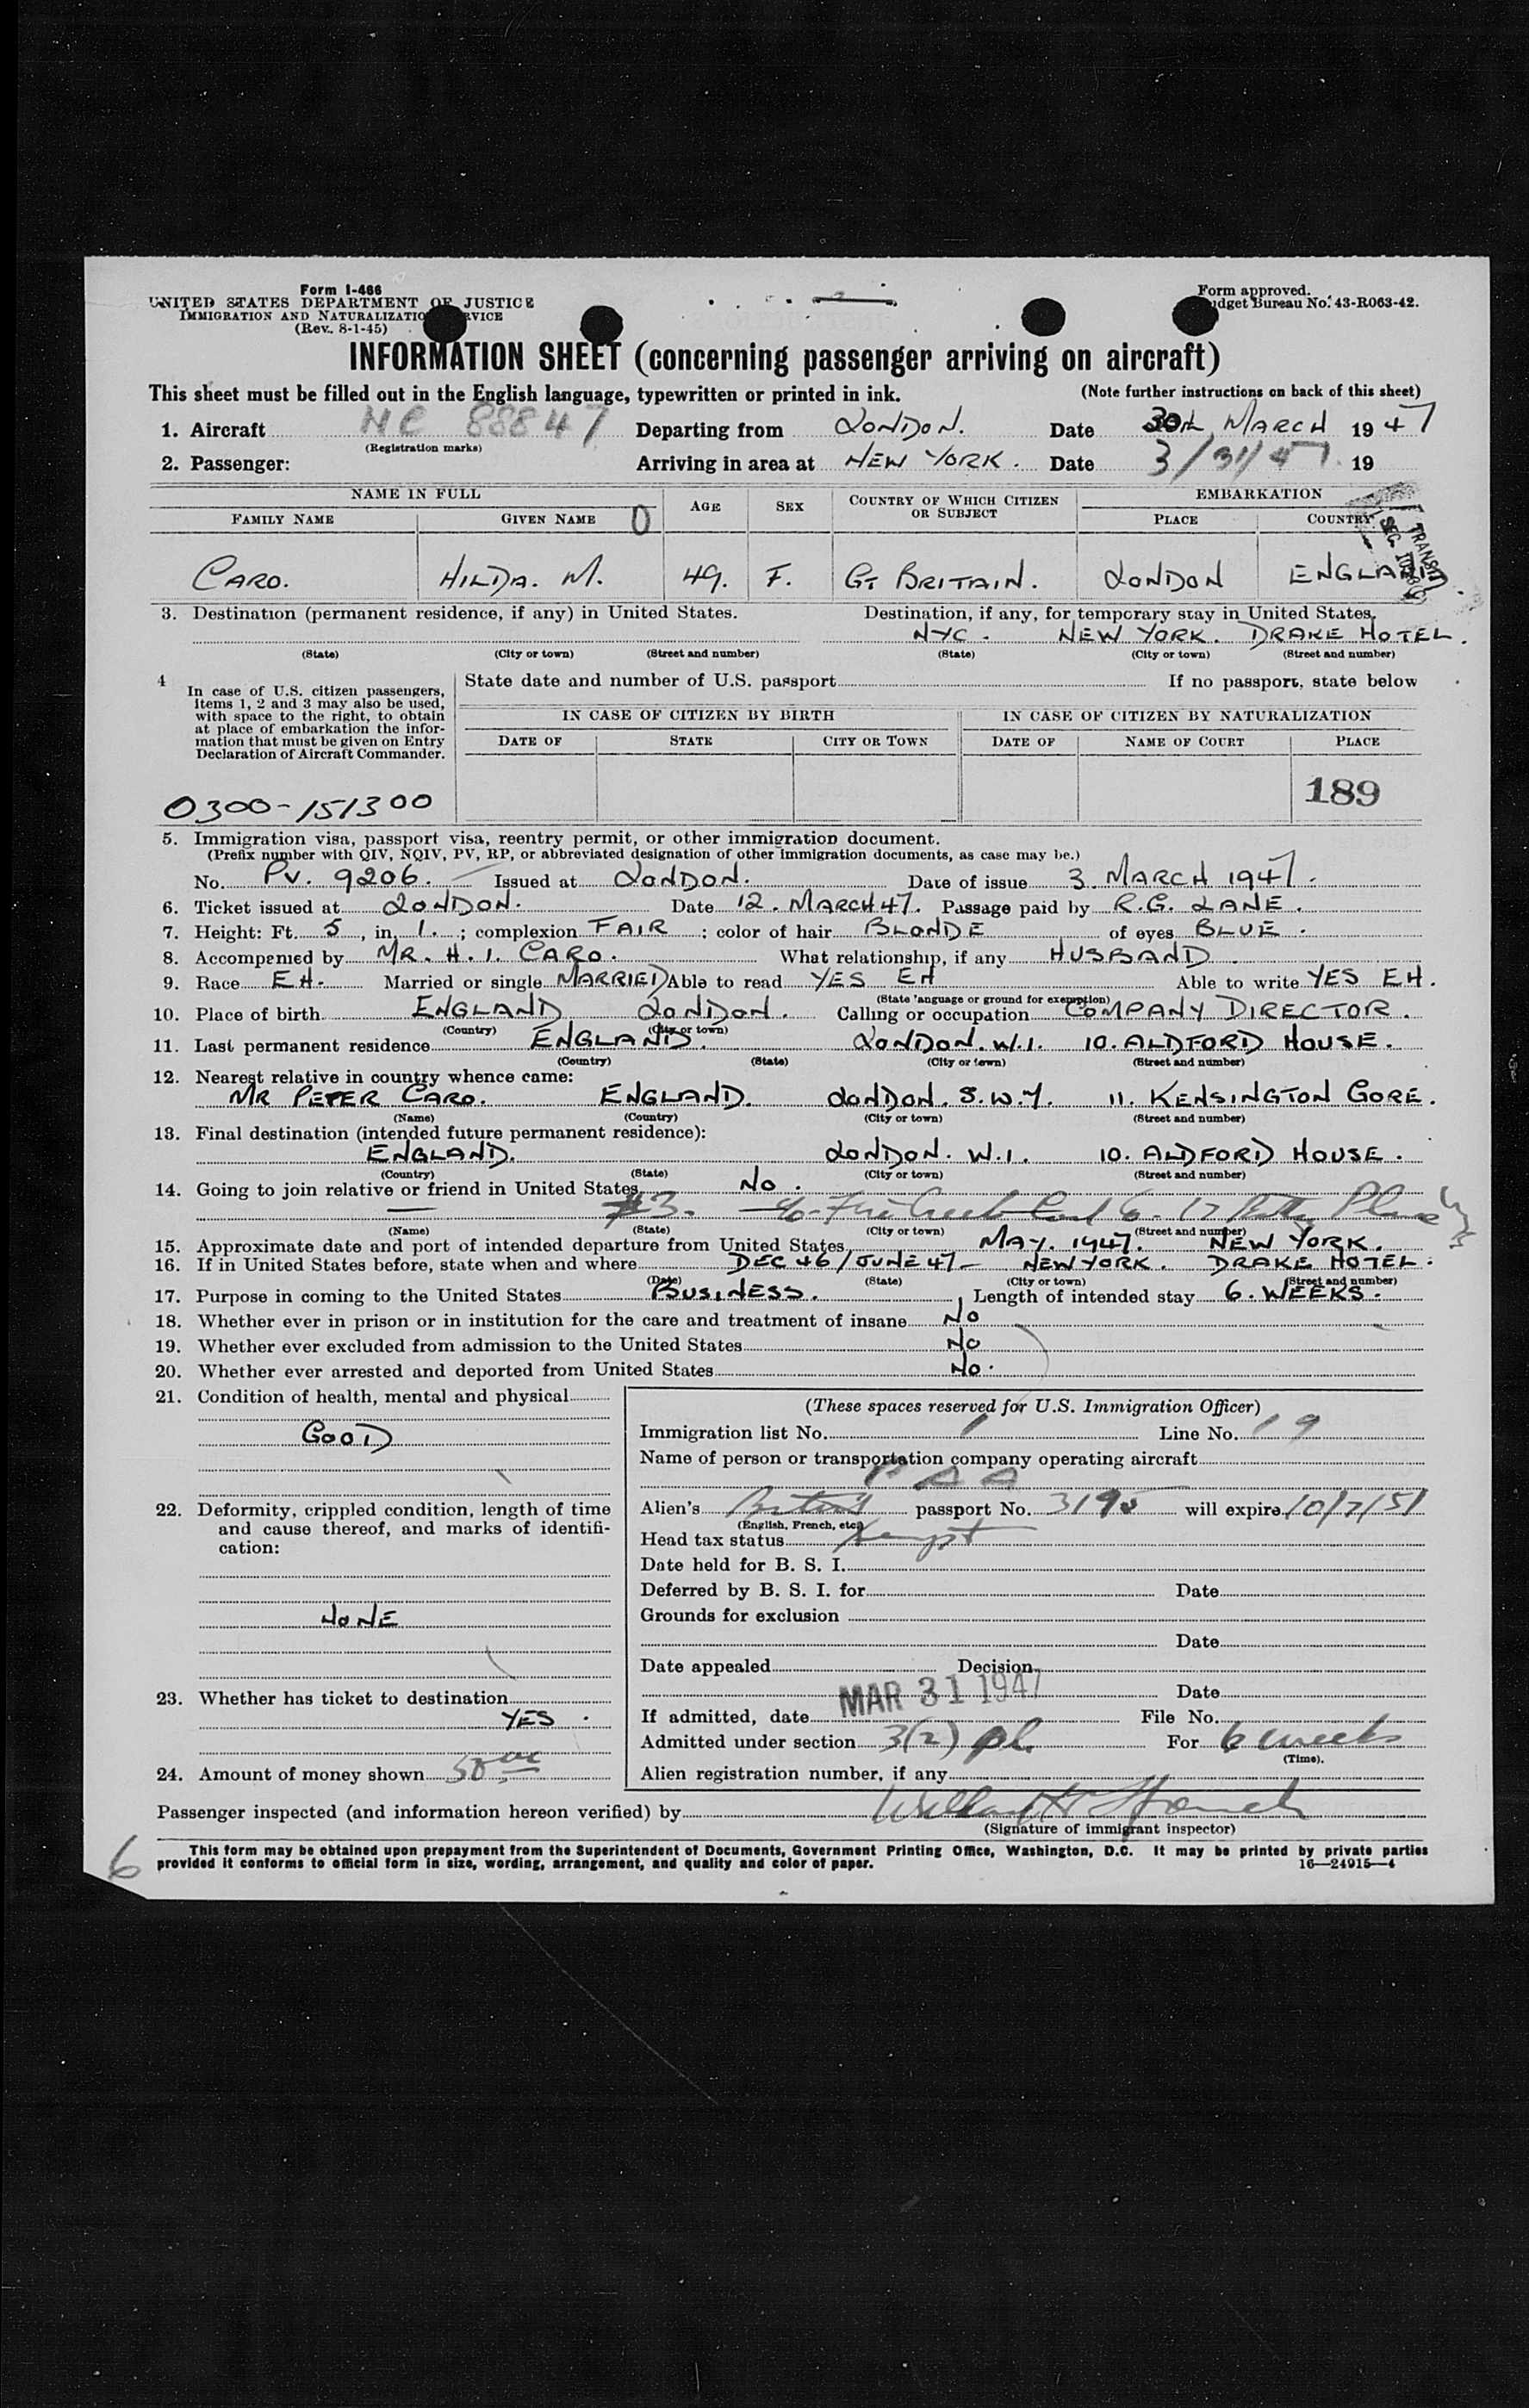 Form I-466
UNITED STATES DEPARTMENT OF JUSTICE
IMMIGRATION AND NATURALIZATION SERVICE
(Rev. 8-1-45)
Form approved.
Budget Bureau No. 43-R063-42.
INFORMATION SHEET (concerning passenger arriving on aircraft)
This sheet must be filled out in the English language, typewritten or printed in ink. (Note further instructions on back of this sheet)
1. Aircraft NC 88847 Departing from LONDON. Date 30th MARCH 1947
(Registration marks)
2. Passenger: Arriving in area at NEW YORK. Date 3/31/47. 19
NAME IN FULL AGE SEX COUNTRY OF WHICH CITIZEN OR SUBJECT EMBARKATION
FAMILY NAME GIVEN NAME 0 PLACE COUNTRY
TRANSIT
CARO. HILDA. M. 49. F. GT BRITAIN. LONDON ENGLAND
3. Destination (permanent residence, if any) in United States. Destination, if any, for temporary stay in United States.
NYC. NEW YORK. DRAKE HOTEL.
(State) (City or town) (Street and number) (State) (City or town) (Street and number)
4 In case of U.S. citizen passengers, items 1, 2 and 3 may also be used, with space to the right, to obtain at place of embarkation the information that must be given on Entry Declaration of Aircraft Commander.
State date and number of U.S. passport If no passport, state below
IN CASE OF CITIZEN BY BIRTH IN CASE OF CITIZEN BY NATURALIZATION
DATE OF STATE CITY OR TOWN DATE OF NAME OF COURT PLACE
0300-151300 189
5. Immigration visa, passport visa, reentry permit, or other immigration document.
(Prefix number with QIV, NQIV, PV, RP, or abbreviated designation of other immigration documents, as case may be.)
No. PV. 9206. Issued at LONDON. Date of issue 3. MARCH 1947.
6. Ticket issued at LONDON. Date 12. MARCH 47. Passage paid by R.G. LANE.
7. Height: Ft. 5, in. 1.; complexion FAIR; color of hair BLONDE of eyes BLUE.
8. Accompanied by MR. H. I. CARO. What relationship, if any HUSBAND.
9. Race EH. Married or single MARRIED Able to read YES EH Able to write YES EH.
(State language or ground for exemption)
10. Place of birth ENGLAND LONDON. Calling or occupation COMPANY DIRECTOR.
(Country) (City or town)
11. Last permanent residence ENGLAND. LONDON. W.1. 10. ALDFORD HOUSE.
(Country) (State) (City or town) (Street and number)
12. Nearest relative in country whence came:
MR PETER CARO. ENGLAND. LONDON. S.W.7. 11. KENSINGTON GORE.
(Name) (Country) (City or town) (Street and number)
13. Final destination (intended future permanent residence):
ENGLAND. LONDON. W.1. 10. ALDFORD HOUSE.
(Country) (State) (City or town) (Street and number)
14. Going to join relative or friend in United States No.
#3.
(Name) (State) (City or town) (Street and number)
15. Approximate date and port of intended departure from United States MAY. 1947. NEW YORK.
16. If in United States before, state when and where DEC 46/JUNE 47- NEW YORK. DRAKE HOTEL.
(Date) (State) (City or town) (Street and number)
17. Purpose in coming to the United States BUSINESS. Length of intended stay 6. WEEKS.
18. Whether ever in prison or in institution for the care and treatment of insane No
19. Whether ever excluded from admission to the United States No
20. Whether ever arrested and deported from United States No.
21. Condition of health, mental and physical
GOOD
22. Deformity, crippled condition, length of time and cause thereof, and marks of identification:
NONE
23. Whether has ticket to destination
YES.
24. Amount of money shown 50
(These spaces reserved for U.S. Immigration Officer)
Immigration list No. 1 Line No. 19
Name of person or transportation company operating aircraft
PAA
Alien's British passport No. 3195 will expire 10/7/51
(English, French, etc.)
Head tax status Exempt
Date held for B. S. I.
Deferred by B. S. I. for Date
Grounds for exclusion
Date
Date appealed Decision
Date
MAR 31 1947
If admitted, date File No.
Admitted under section 3(2) For 6 weeks
(Time).
Alien registration number, if any
Passenger inspected (and information hereon verified) by
(Signature of immigrant inspector)
6
This form may be obtained upon prepayment from the Superintendent of Documents, Government Printing Office, Washington, D.C. It may be printed by private parties
provided it conforms to official form in size, wording, arrangement, and quality and color of paper. 16—24915—4